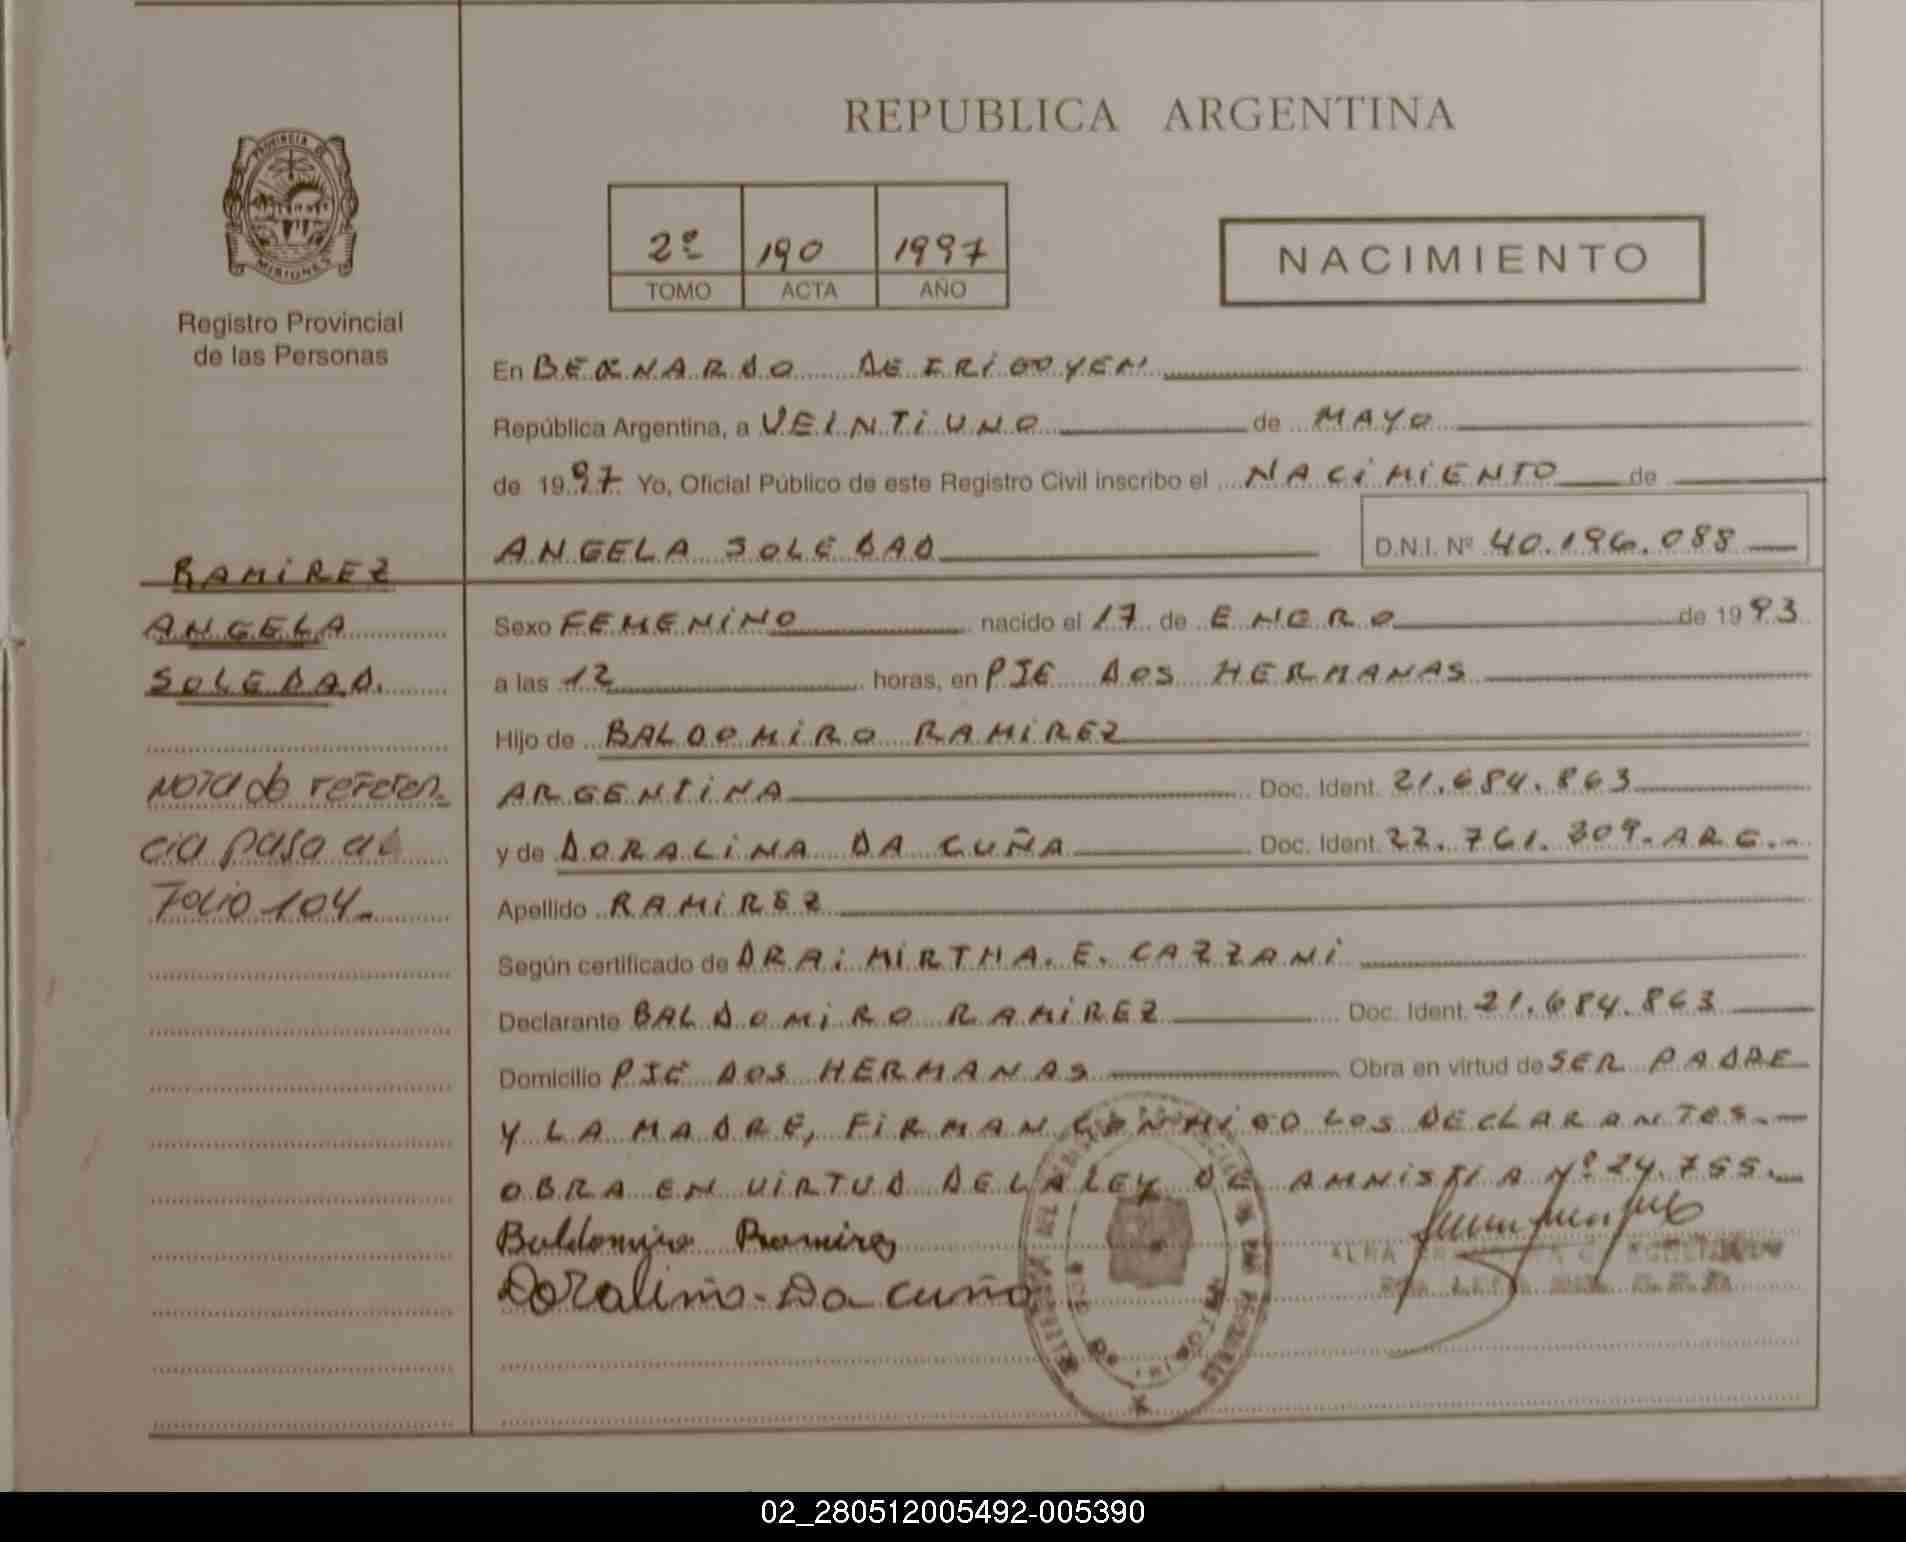 PROVINCIA DE
MISIONES
Registro Provincial
de las Personas
REPUBLICA ARGENTINA
2º 190 1997
TOMO ACTA AÑO
NACIMIENTO
En BERNARDO DE IRIGOYEN
República Argentina, a VEINTIUNO de MAYO
de 1997 Yo, Oficial Público de este Registro Civil inscribo el NACIMIENTO de
ANGELA SOLEDAD D.N.I. Nº 40.196.088
RAMIREZ
ANGELA
SOLEDAD.
Nota de referen_
cia paso al
Folio 104_
Sexo FEMENINO nacido el 17 de ENERO de 1993
a las 12 horas, en PJE DOS HERMANAS
Hijo de BALDOMIRO RAMIREZ
ARGENTINA Doc. Ident. 21.684.863
y de DORALINA DA CUÑA Doc. Ident. 22.761.309. ARG.-
Apellido RAMIREZ
Según certificado de DRA: MIRTHA. E. CAZZANI
Declarante BALDOMIRO RAMIREZ Doc. Ident. 21.684.863
Domicilio PJE DOS HERMANAS Obra en virtud de SER PADRE
Y LA MADRE, FIRMAN CONMIGO LOS DECLARANTES.-
OBRA EN VIRTUD DE LA LEY DE AMNISTIA Nº 24.755.-
Baldomiro Ramirez
Doralina - Da cuña
02_280512005492-005390